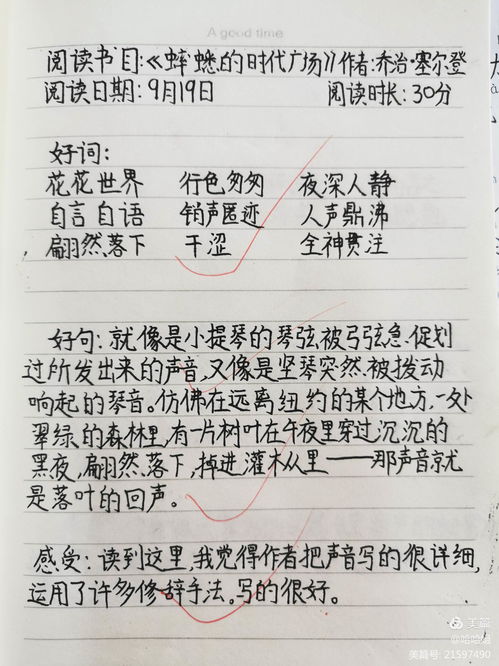 A good time
阅读书目:《蟀蟋的时代广场》作者:乔治·塞尔登
阅读日期:9月19日 阅读时长:30分
好词:
花花世界 行色匆匆 夜深人静
自言自语 销声匿迹 人声鼎沸
翩然落下 干涩 全神贯注
好句:就像是小提琴的琴弦被弓弦急促划
过所发出来的声音,又像是竖琴突然被拨动
响起的琴音。仿佛在远离纽约的某个地方,一处
翠绿的森林里,有一片树叶在午夜里穿过沉沉的
黑夜,翩然落下,掉进灌木从里——那声音就
是落叶的回声。
感受:读到这里,我觉得作者把声音写的很详细,
运用了许多修辞手法。写的很好。
美篇
美篇号:21597490